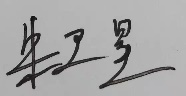 朱卫星